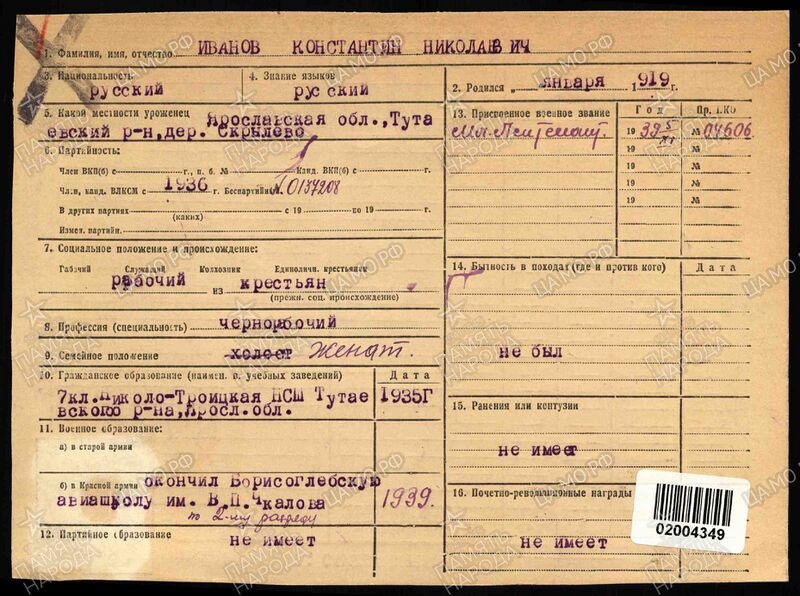 1. Фамилия, имя, отчество ИВАНОВ КОНСТАНТИН НИКОЛАЕВИЧ
3. Национальность русский
4. Знание языков русский
2. Родился „ января 1919 г.
5. Какой местности уроженец Ярославская обл.,Тута
евский р-н,дер. Скрылево
13. Присвоенное военное звание
Год
Пр. НКО
Мл. Лейтенант.
19 39 5/XI
№ 04606
19 №
19 №
19 №
19 №
6. Партийность:
Член ВКП(б) с г., п. б. № Канд. ВКП(б) с г.
Чл.и, канд. ВЛКСМ с 1936 г. Беспартийн. №0137208
В других партиях с 19 по 19 г.
(каких)
Измен. партийн.
7. Социальное положение и происхождение:
Рабочий Служащий Колхозник Единоличн. крестьянин
рабочий из крестьян
(прежн. соц. происхождение)
14. Бытность в походах (где и против кого)
Дата
не был
8. Профессия (специальность) чернорабочий
9. Семейное положение холост Женат.
10. Гражданское образование (наимен. в. учебных заведений)
Дата
7кл.Николо-Троицкая НСШ Тутае
вского р-на,Яросл.обл.
1935Г
15. Ранения или контузии
не имеет
11. Военное образование:
а) в старой армии
б) в Красной армии окончил Борисоглебскую
авиашколу им. В.П.Чкалова
по 2-му разряду
1939.
16. Почетно-революционные награды
не имеет
12. Партийное образование не имеет
02004349
ПАМЯТЬ НАРОДА
ЦАМО.РФ